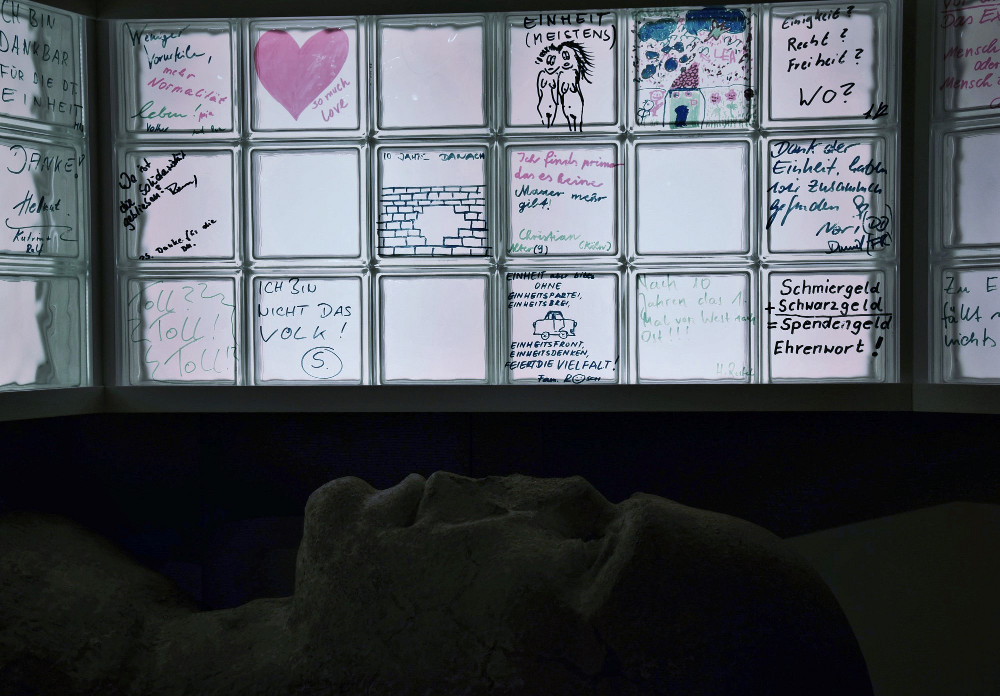 ICH BIN
DANKBAR
FÜR DIE DT.
EINHEIT
Weniger
Vorurteile,
mehr
Normalität
leben!
so much
Love
EINHEIT
(MEISTENS)
Einigkeit?
Recht?
Freiheit?
WO?
Mensch
oder
Mensch
DANKE!
Helmut
Wo ist
die Solidarität
geblieben?
10 JAHRE DANACH
Ich finds prima
das es keine
Mauer mehr
gibt!
Christian
Alter (9) (Köln)
Dank der
Einheit, haben
wir zusammen
gefunden
Toll???
Toll!
Toll!?
ICH BIN
NICHT DAS
VOLK!
S.
EINHEIT aber bitte
OHNE
EINHEITSPARTEI,
EINHEITSBREI,
EINHEITSFRONT,
EINHEITSDENKEN,
FEIERT DIE VIELFALT!
Nach 10
Jahren das 1.
Mal von West nach
Ost!!!
Schmiergeld
+ Schwarzgeld
= Spendengeld
Ehrenwort!
Zu E
fällt m
nichts